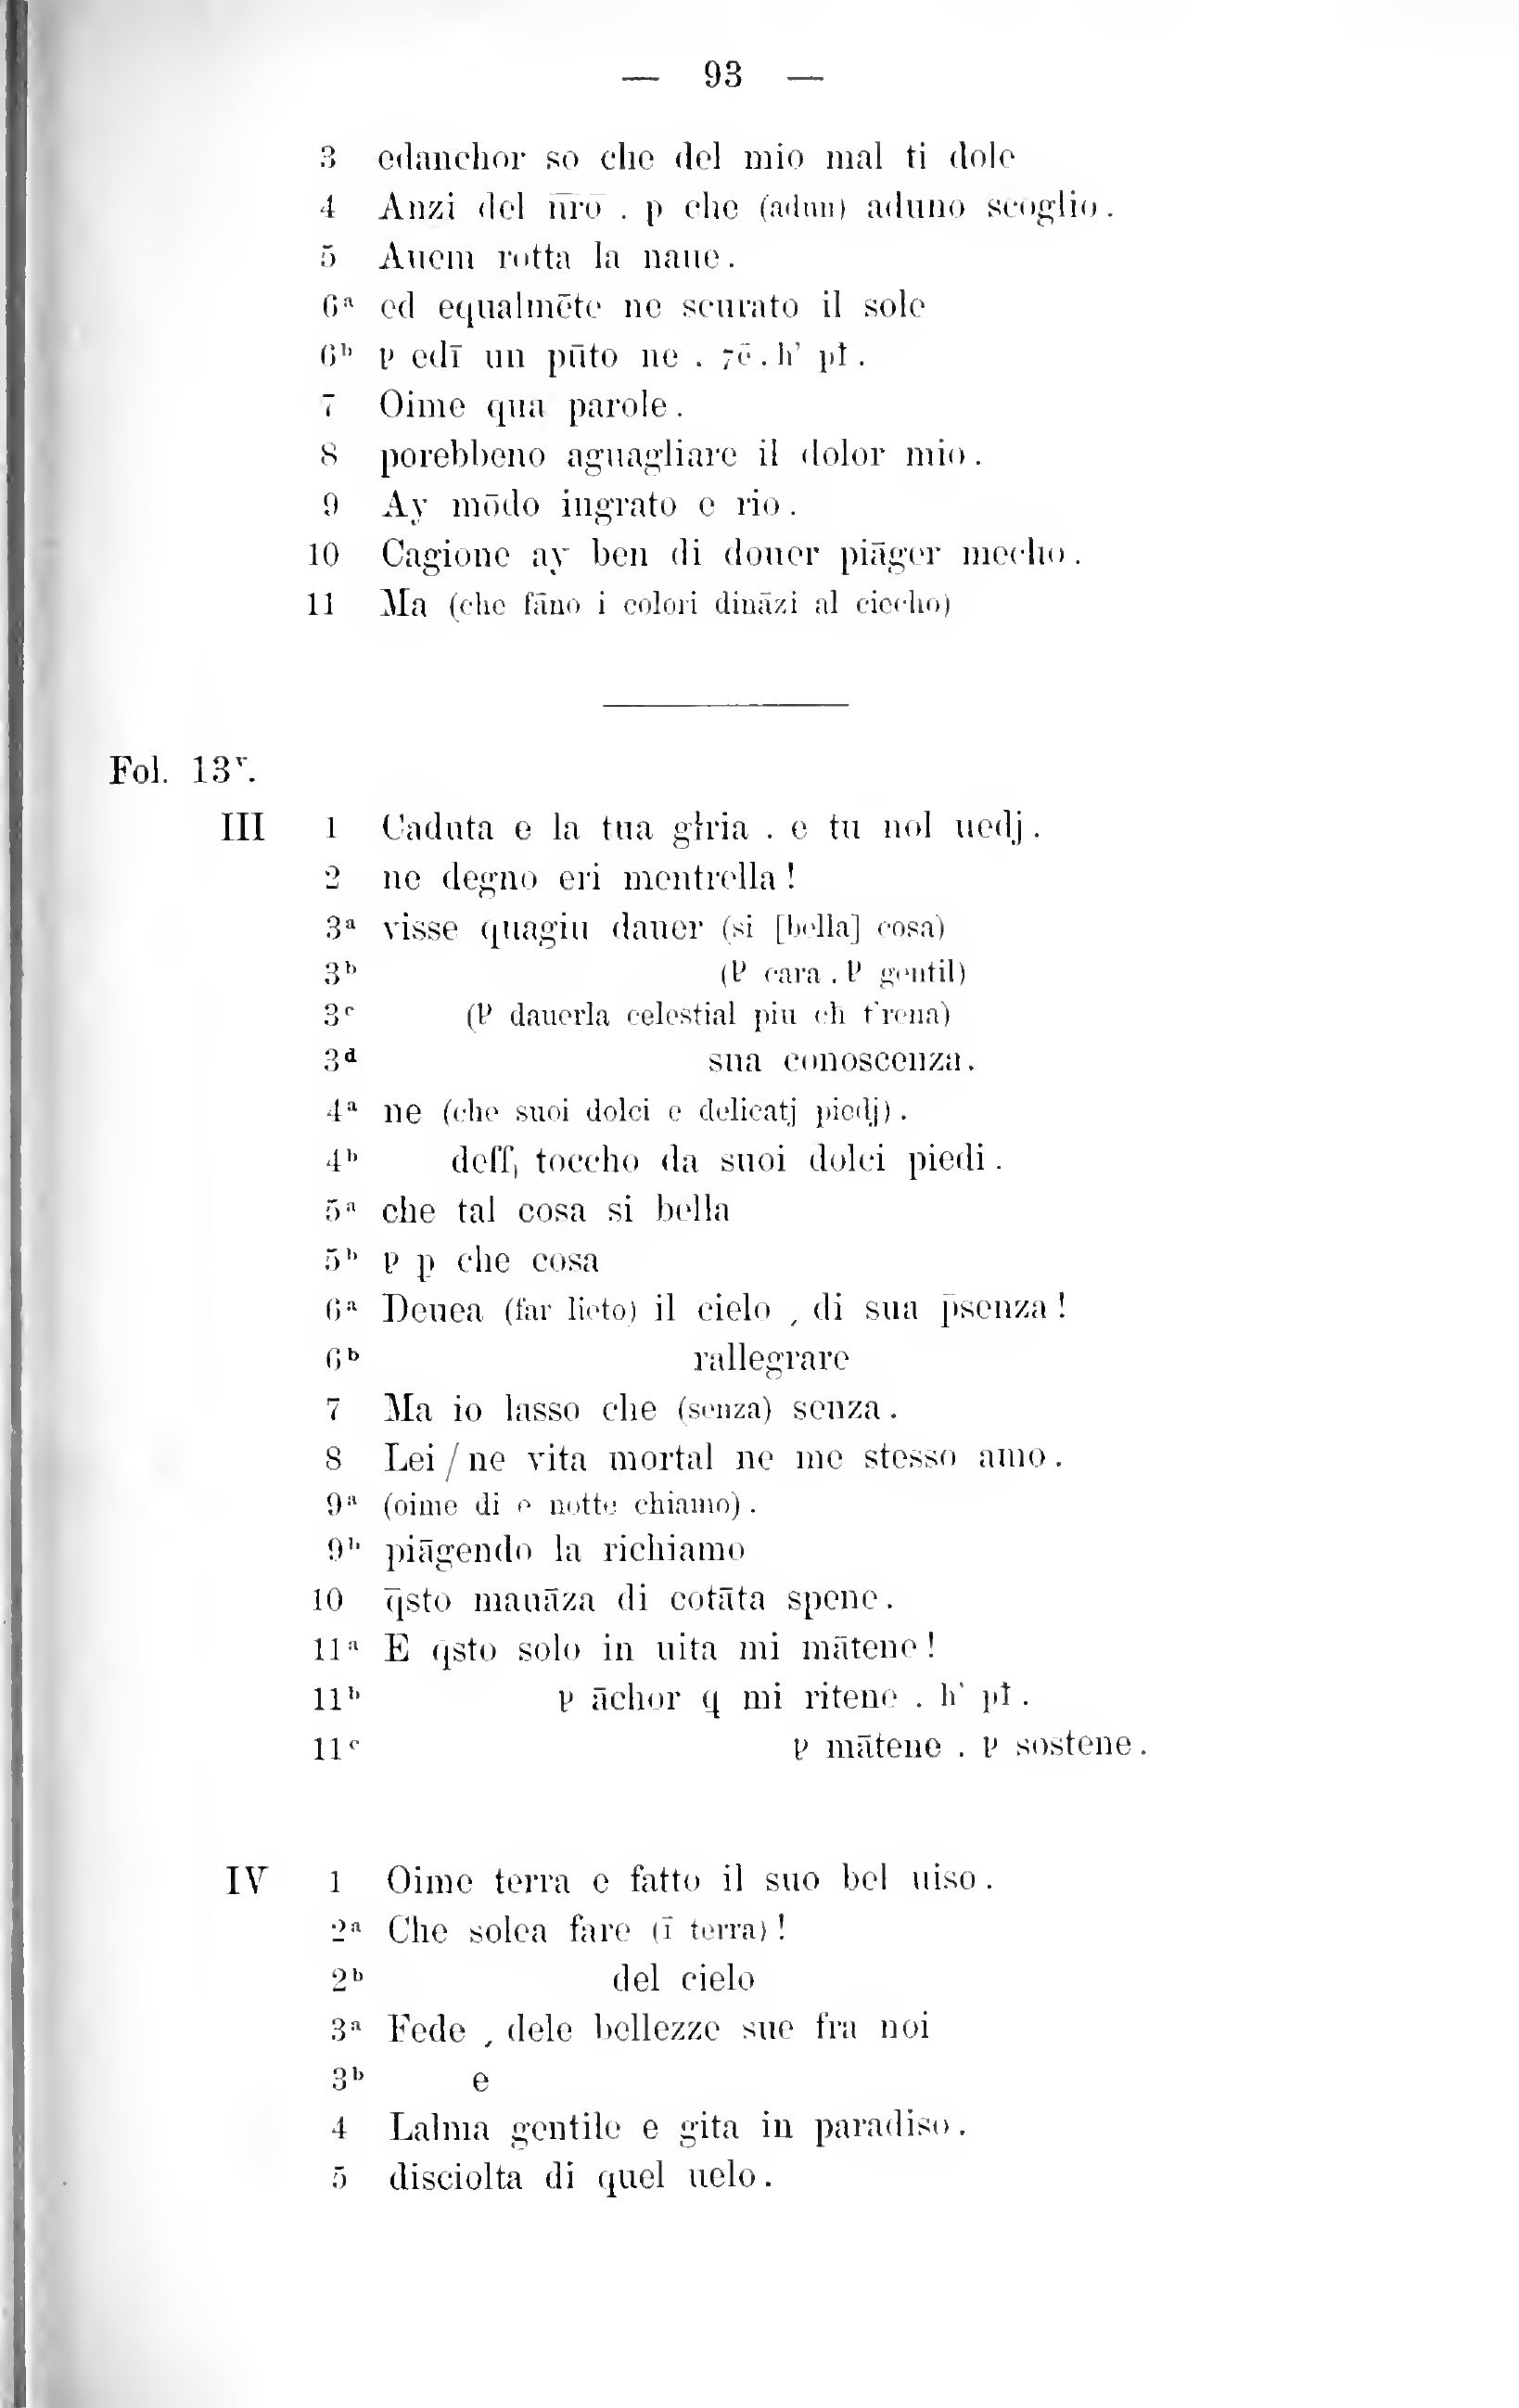 — 93 —
3 edanchor so che del mio mal ti dole
4 Anzi del n̄rō . p che (adun) aduno scoglio .
5 Auem rotta la naue .
6ᵃ ed equalmēte ne scurato il sole
6ᵇ ꝩ edī un pūto ne . ⁊ē . h’ pƚ .
7 Oime qua parole .
8 porebbeno aguagliare il dolor mio .
9 Ay mōdo ingrato e rio .
10 Cagione ay ben di douer piāger mecho .
11 Ma (che fāno i colori dināzi al ciecho)
Fol. 13ʳ.
III 1 Caduta e la tua gƚria . e tu nol uedj .
2 ne degno eri mentrella !
3ᵃ visse quagiu dauer (si [bella] cosa)
3ᵇ (ꝩ cara . ꝩ gentil)
3ᶜ (ꝩ dauerla celestial piu cħ t'rena)
3ᵈ sua conoscenza .
4ᵃ ne (che suoi dolci e delicatj piedj) .
4ᵇ toccho da suoi dolci piedi .
5ᵃ che tal cosa si bella
5ᵇ ꝩ p che cosa
6ᵃ Deuea (far lieto) il cielo , di sua p̄senza !
6ᵇ rallegrare
7 Ma io lasso che (senza) senza .
8 Lei / ne vita mortal ne me stesso amo .
9ᵃ (oime di e notte chiamo) .
9ᵇ piāgendo la richiamo
10 q̄sto mauāza di cotāta spene .
11ᵃ E qsto solo in uita mi mātene !
11ᵇ ꝩ āchor q mi ritene . h’ pƚ .
11ᶜ ꝩ mātene . ꝩ sostene .
IV 1 Oime terra e fatto il suo bel uiso .
2ᵃ Che solea fare (ī terra) !
2ᵇ del cielo
3ᵃ Fede , dele bellezze sue fra noi
3ᵇ e
4 Lalma gentile e gita in paradiso .
5 disciolta di quel uelo .